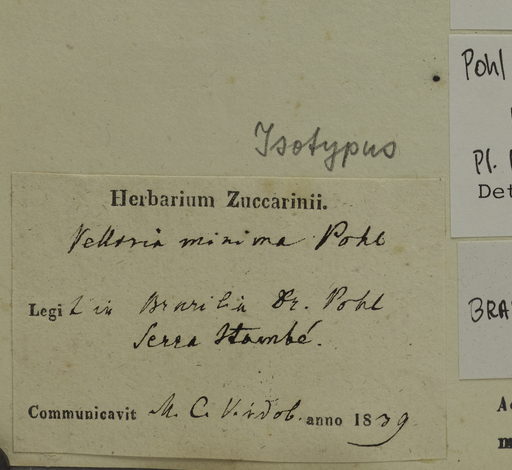 Isotypus
Herbarium Zuccarinii.
Vellosia minima Pohl
Legit in Brasilia Dr. Pohl
Serra Itambé.
Communicavit M. C. Vindob. anno 1839
Pohl
Pl.
Det
BRA